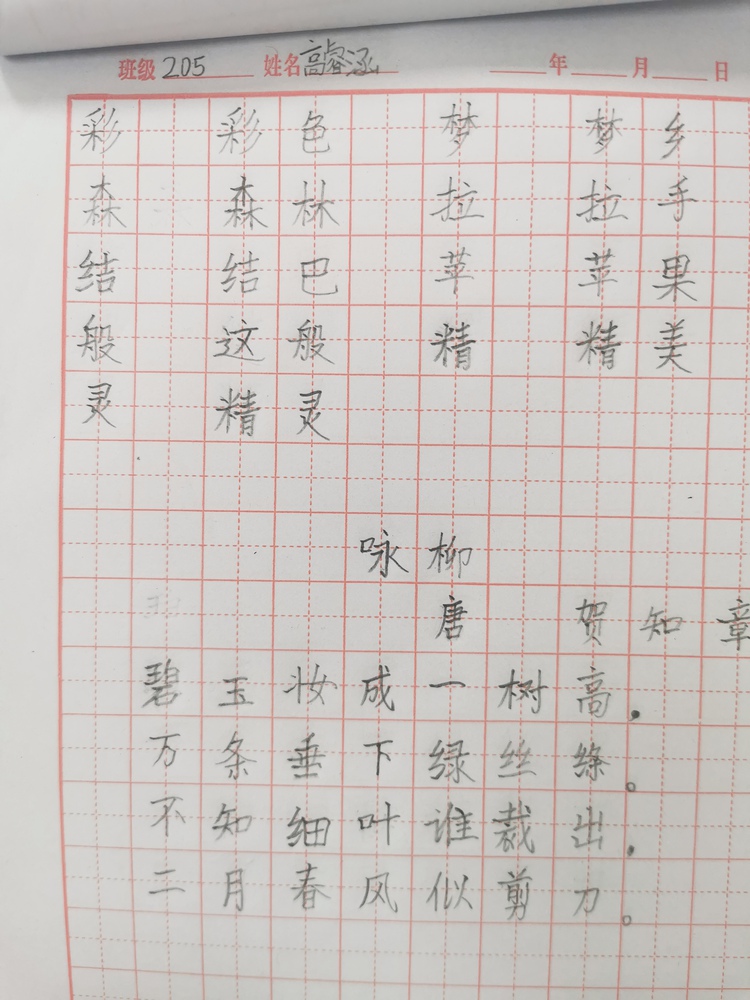 班级 205 姓名 高睿涵 年 月 日
彩 彩色 梦 梦乡
森 森林 拉 拉手
结 结巴 苹 苹果
般 这般 精 精美
灵 精灵
咏柳
唐 贺知章
碧玉妆成一树高,
万条垂下绿丝绦。
不知细叶谁裁出,
二月春风似剪刀。